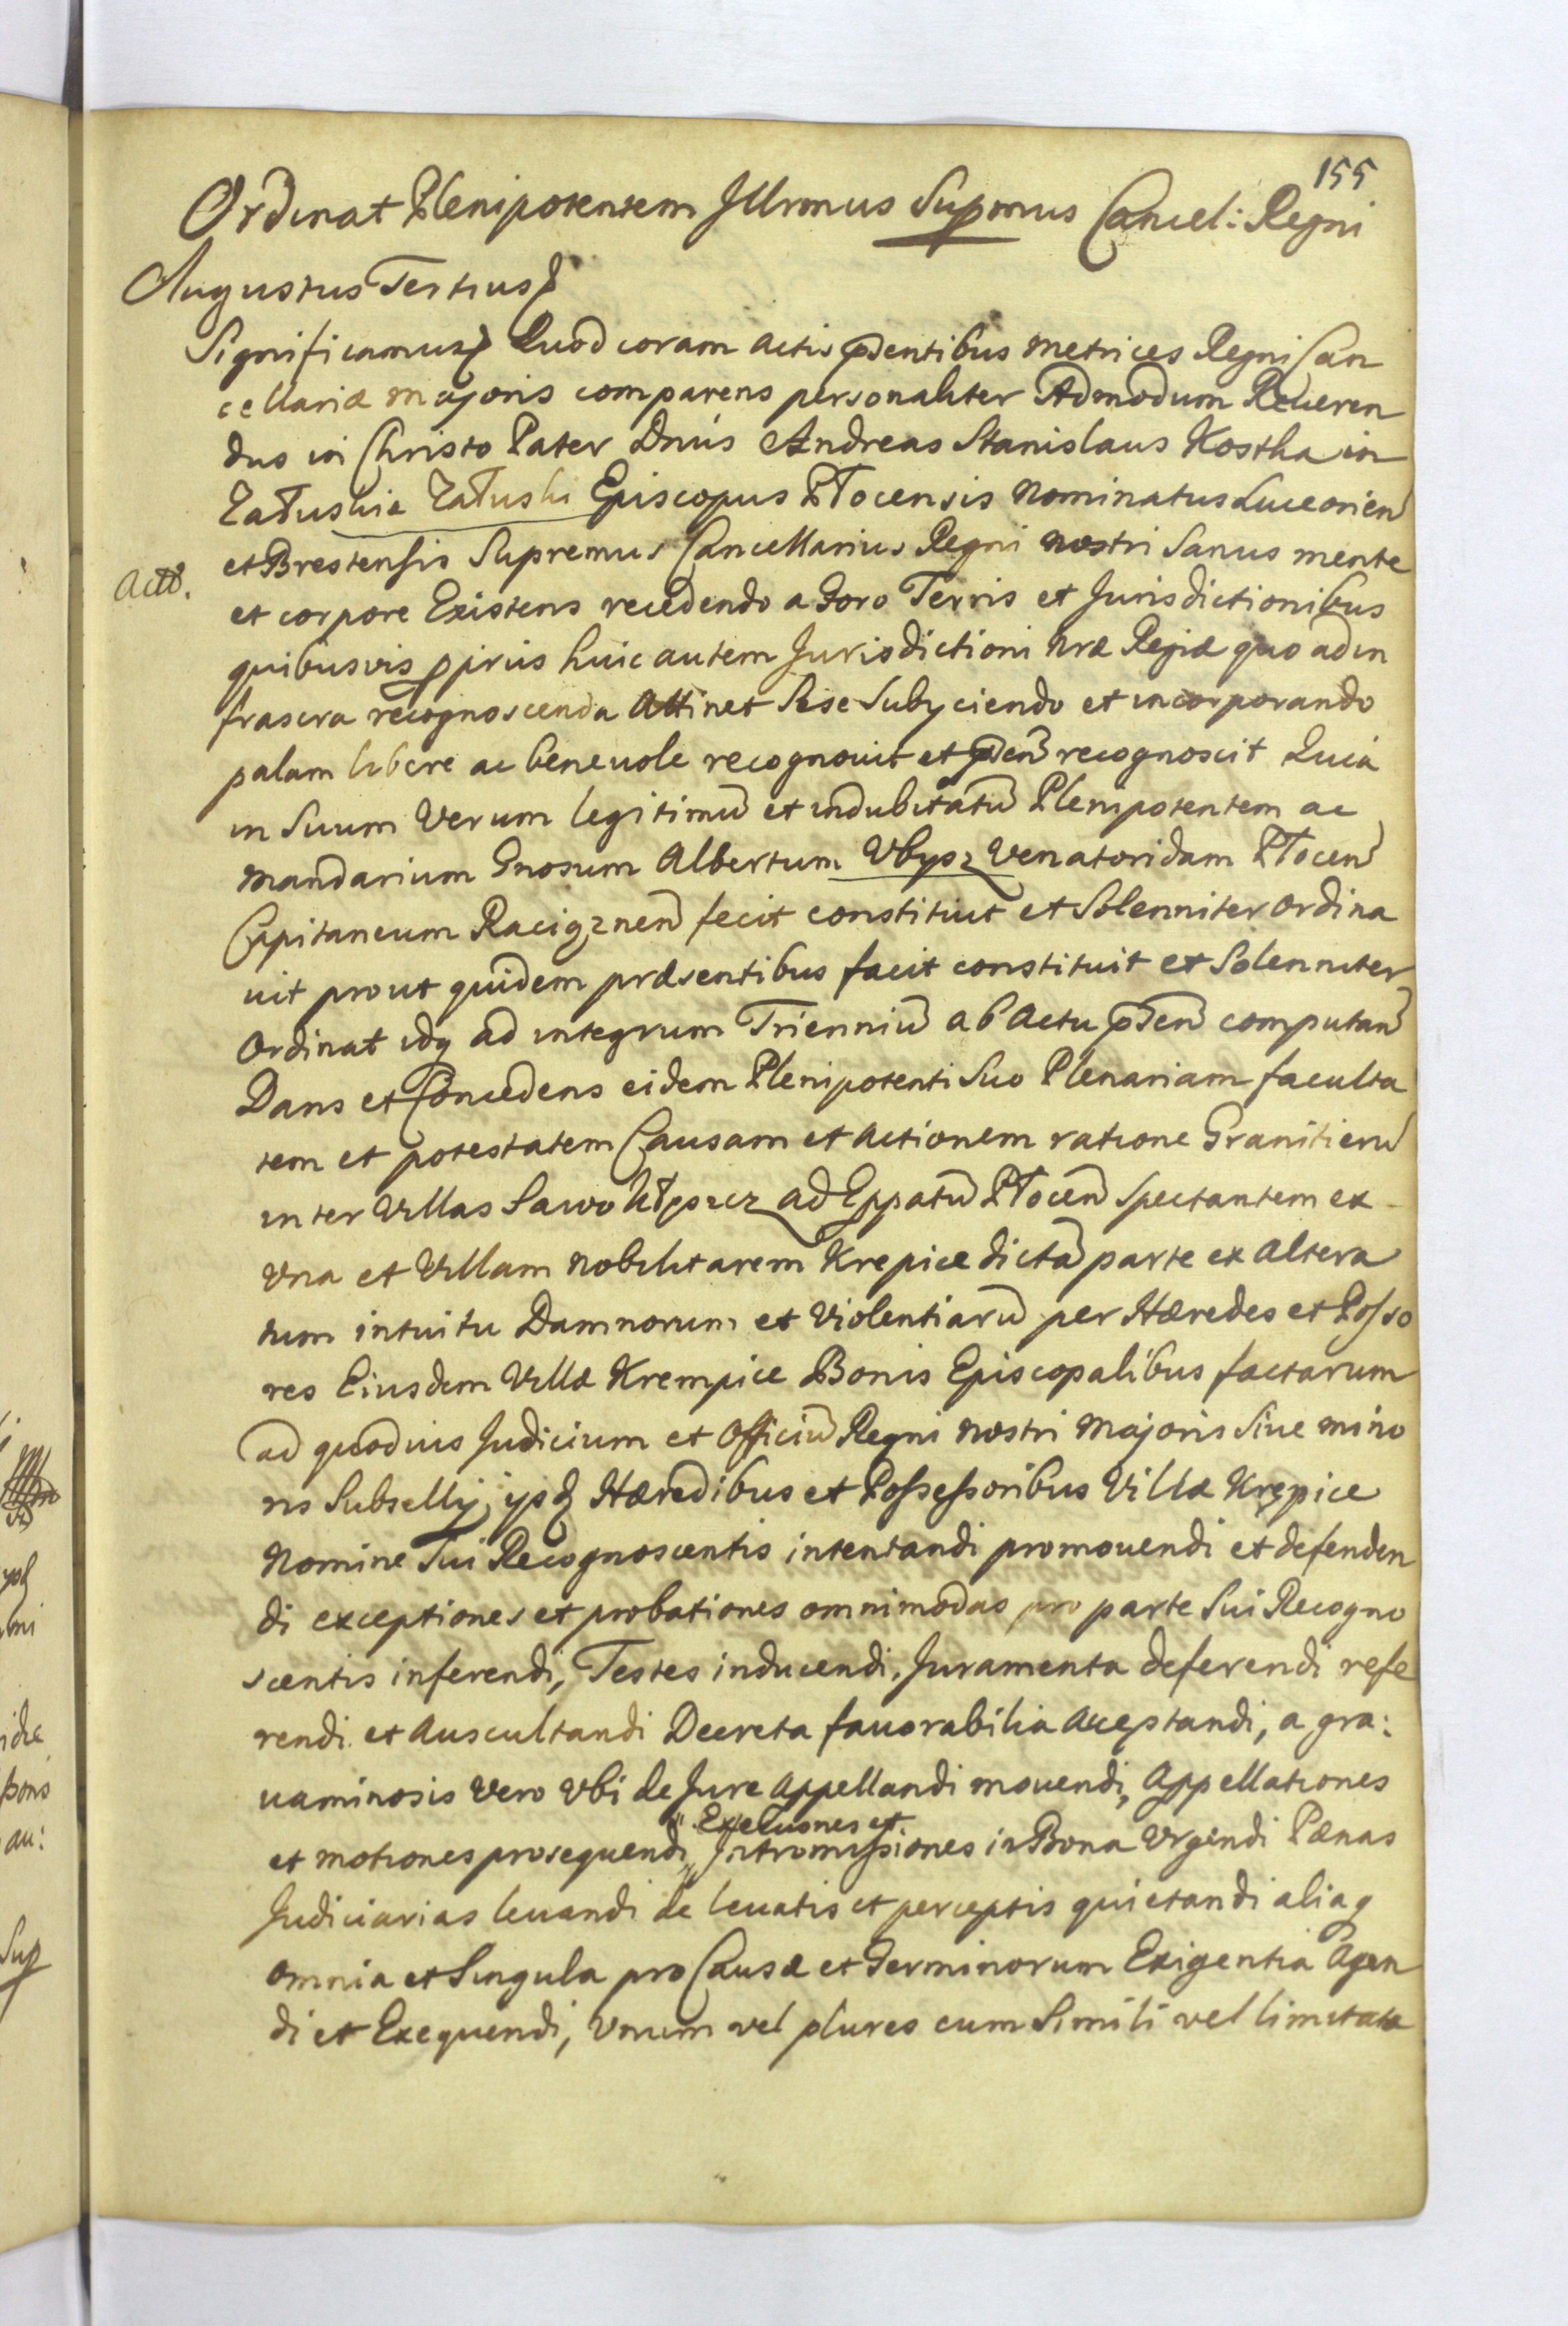 155
Ordinat Plenipotentem Illrmus Supmus Cancel: Regni
Augustus Tertius
Significamus Quod coram Actis pntibus Metrices Regni Can
cellariæ Majoris comparens personaliter Admodum Reueren
dus in Christo Pater Dnus Andreas Stanislaus Kostka in
Załuskie Załuski Episcopus Płocensis Nominatus Luceorien
et Brestensis Supremus Cancellarius Regni Nostri Sanus mente
Actō.
et corpore Existens recedendo a Foro Terris et Jurisdictionibus
quibusvis ppriis huic autem Jurisdictioni Nræ Regiæ quo ad in
frascra recognoscenda Attinet Sese Subyciendo et incorporando
palam libere ac beneuole recognouit et pnte recognoscit Quia
in Suum Verum legitimū et indubitatū Plenipotentem ac
Mandarium Gnosum Albertum Ubysz Venatoridam Płocen
Capitaneum Raciąznen fecit constituit et Solenniter ordina
uit prout quidem præsentibus facit constituit et Solenniter
Ordinat idq ad integrum Trienniū ab Actu pnti computan
Dans et Concedens eidem Plenipotenti Suo Plenariam faculta
tem et potestatem Causam et Actionem ratione Granitierū
inter Villas ad Eppatū Płocen Spectantem ex
Una et Villam Nobilitarem Krepice dictā parte ex Altera
tum intuitu Damnorum et Violentiarū per Hæredes et Posso
res Eiusdem Villæ Krempice Bonis Episcopalibus factarum
ad quoduis Judicium et Officiū Regni Nostri Majoris Siue Mino
ris Subsellij, ysd Hæredibus et Possessoribus Villæ Krępice
Nomine Sui Recognoscentis intentandi promouendi et defenden
di exceptiones et probationes omnimodas pro parte Sui Recogno
scentis inferendi, Testes inducendi, Juramenta deferendi refe
rendi et Auscultandi Decreta fauorabilia Acceptandi, a gra:
uaminosis Vero Vbi de Jure Appellandi mouendi, Appellationes
Exclusiones et
et motiones prosequendi, Intromissiones in Bona Vrgendi Pænas
Judiciarias leuandi de leuatis et perceptis quietandi aliaq
omnia et Singula pro Causæ et Terminorum Exigentia Agen
di et Exequendi, Unum vel plures cum Simili vel limitata